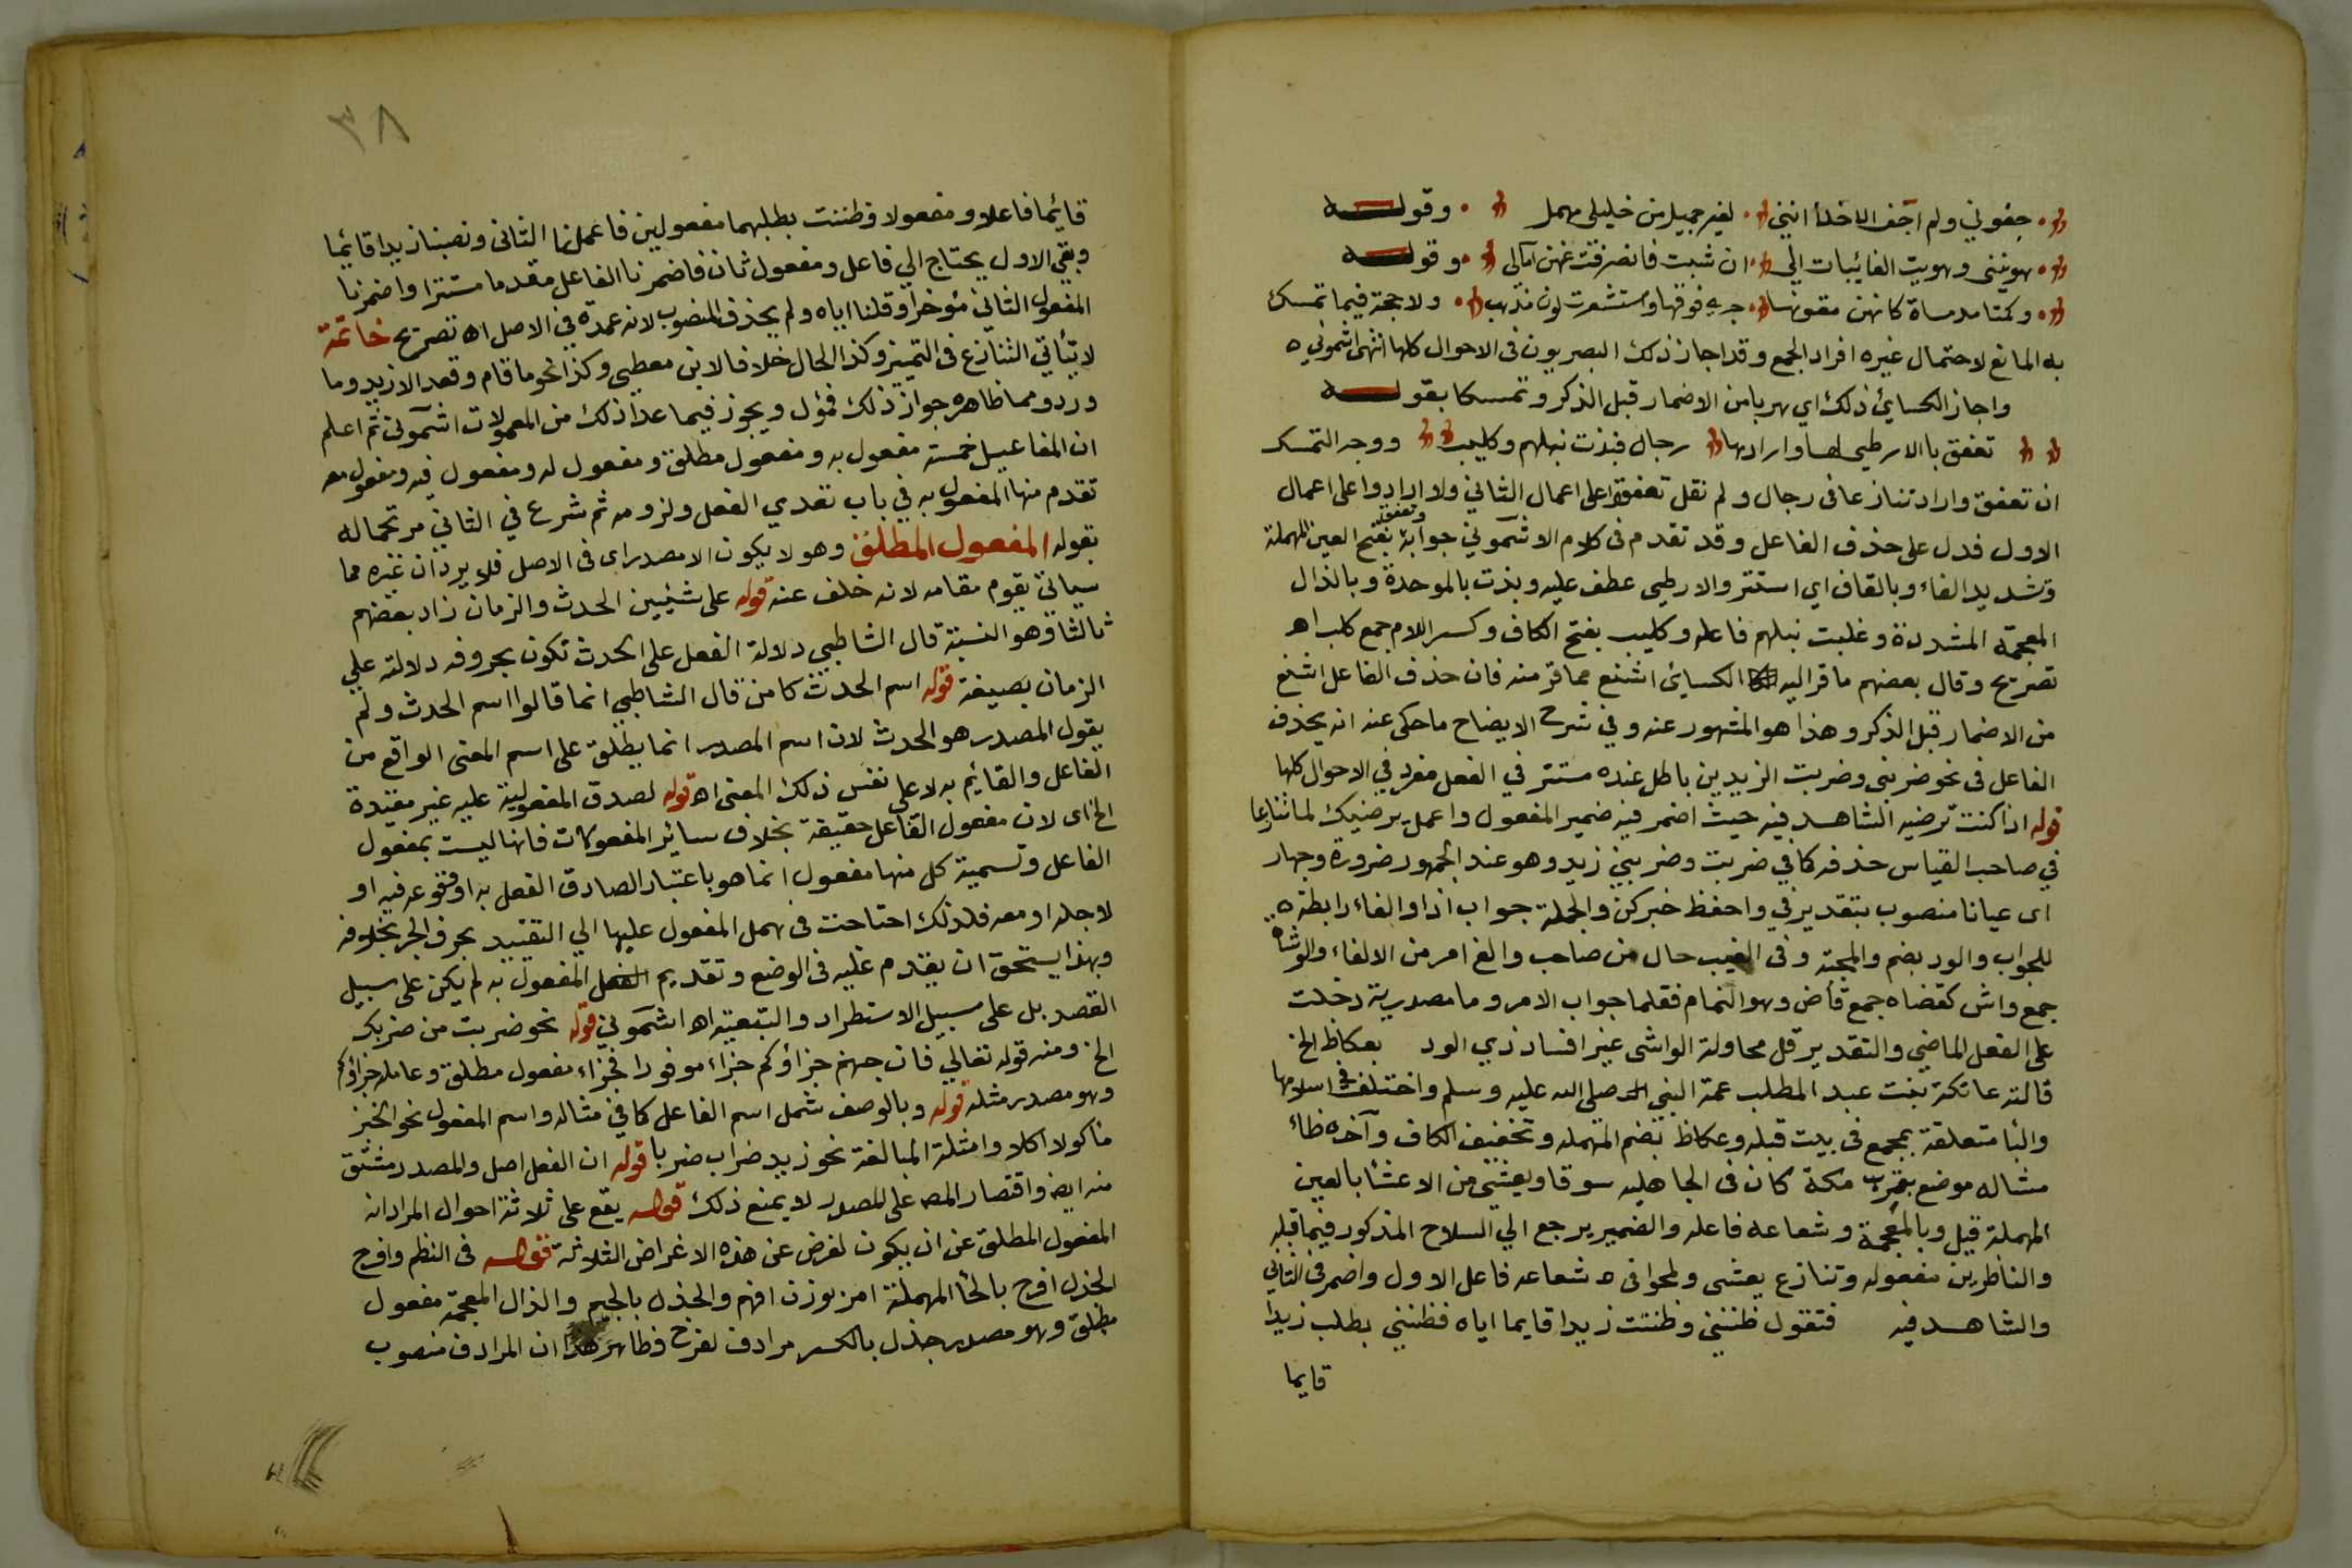 جفوني ولم اجف الاخلأ انني لغير جميل من خليلي مهمل وقوله
هوينني وهويت الغائيبات الي ان شبت فانصرفت عنهن آمالى وقوله
وكمتا مدماة كانهن متونها جري فوقها واستشعرت لون مذهب ولا حجة فيما تمسك
به المانع لاحتمال غيره افراد الجمع وقد اجاز ذلك البصريون فى الاحوال كلها انتهى اشموني ه
واجاز الكسايئ ذلك اي هربا من الاضمار قبل الذكر وتمسكا بقوله
تعفق باالارطي لها وارادها رجال فبذت نبلهم وكليب ووجه التمسك
ان تعفق واراد تنازعا فى رجال ولم نقل تعفقوا على اعمال الثاني ولا ارادوا على اعمال
الاول فدل على حذف الفاعل وقد تقدم فى كلام الاشموني جوابه وتعفق بفتح العين المهملة
وتشديد الفاء وبالقاف اي استتر والارطي عطف عليه وبذت بالموحدة وبالذال
المعجمة المشددة وغلبت نبلهم فاعله وكليب بفتح الكاف وكسر اللام جمع كلب اهـ
تصريح وقال بعضهم ما فر اليه الكسايئ اشنع مما فر منه فان حذف الفاعل اشنع
من الاضمار قبل الذكر وهذا هو المشهور عنه وفي شرح الايضاح ما حكى عنه انه يحذف
الفاعل فى نحو ضربنى وضربت الزيدين باطل عنده مستتر في الفعل مفرد في الاحوال كلها
قوله اذا كنت ترضيه الشاهد فيه حيث اضمر فيه ضمير المفعول واعمل يرضيك لما تنازعا
في صاحب القياس حذفه كما في ضربت وضربني زيد وهو عند الجمهور ضرورة وجهار
اى عيانا منصوب بتقدير في واحفظ خبر كن والجملة جواب اذا والفاء رابطة ه
للجواب والود بضم والمحبة وفى الغيب حال من صاحب والغ امر من الالغاء والوشاه
جمع واش كقضاه جمع قاض وهو النمام فقلما جواب الامر وما مصدرية دخلت
على الفعل الماضي والتقدير قل محاولة الواشى غير افساد ذي الود بعكاظ الخ
قالته عاتكة بنت عبد المطلب عمة النبي صلى الله عليه وسلم واختلف في اسلامها
والبا متعلقة بمجمع فى بيت قبله وعكاظ بضم المهمله وتخفيف الكاف وآخره ظاء
مشاله موضع بقرب مكة كان فى الجاهليه سوقا ويعشى من الاعشا بالعين
المهملة قيل وبالمعجمة وشعاعه فاعله والضمير يرجع الي السلاح المذكور فيما قبله
والناظرين مفعوله وتنازع يعشى ولمحوا فى ه شعاعه فاعل الاول واضمر فى الثاني
والشاهد فيه فتقول ظننني وظننت زيدا قايما اياه فظنني يطلب زيدا
قايما
٣٨
قائيما فاعلا ومفعولا وظننت يطلبهما مفعولين فاعملنا الثانى ونصبنا زيدا قائيما
وبقي الاول يحتاج الي فاعل ومفعول ثان فاضمرنا الفاعل مقدما مستترا واضمرنا
المفعول الثاني مؤخرا وقلنا اياه ولم يحذف المنصوب لانه عمدة في الاصل اه تصريح خاتمة
لا يتأتي التنازع فى التميز وكذا الحال خلافا لابن معطي وكذا نحو ما قام وقعد الا زيد وما
ورد ومما ظاهره جواز ذلك فمؤل ويجوز فيما عدا ذلك من المعمولات اشموني ثم اعلم
ان المفاعيل خمسة مفعول به ومفعول مطلق ومفعول له ومفعول فيه ومفعول معه
تقدم منها المفعول به في باب تعدي الفعل ولزومه ثم شرع في الثاني مرتجماله
بقوله المفعول المطلق وهو لا يكون الا مصدرا اى فى الاصل فلا يرد ان غيره مما
سياتي يقوم مقامه لانه خلف عنه قوله على شئيين الحدث والزمان زاد بعضهم
ثالثا وهو النسبة قال الشاطبي دلالة الفعل على الحدث تكون بحروفه دلالته علي
الزمان بصيغة قوله اسم الحدث كامن قال الشاطبي انما قالوا اسم الحدث ولم
يقول المصدر هو الحدث لان اسم المصدر انما يطلق على اسم المعنى الواقع من
الفاعل والقايم به لا على نفس ذلك المعنى اه قوله لصدق المفعولية عليه غير مقيدة
الخ اى لان مفعول الفاعل حقيقة بخلاف سائر المفعولات فانها ليست بمفعول
الفاعل وتسمية كل منها مفعول انما هو باعتبار الصادق الفعل به او وقوعه فيه او
لاجله او معه فلذلك احتاحت فى حمل المفعول عليها الي التقييد بحرف الجر بخلافه
وبهذا يستحق ان يقدم عليه فى الوضع وتقديم المفعول به لم يكن على سبيل
القصد بل على سبيل الاستطراد والتبعية اه اشموني قوله نحو ضربت من ضربك
الخ ومنه قوله تعالي فان جهنم جزاؤكم جزاء موفورا فجزاء مفعول مطلق وعامله جزاؤكم
وهو مصدر مثله قوله وبالوصف شمل اسم الفاعل كما في مثاله واسم المفعول نحو الخبز
ماكولا اكلا وامثلة المبالغة نحو زيد ضراب ضربا قوله ان الفعل اصل والمصدر مشتق
منه ايض واقتصار المص على المصدر لا يمنع ذلك قوله يقع على ثلاثة احوال المراد انه
المفعول المطلق عن ان يكون لغرض عن هذه الاغراض الثلاثة قوله فى النظم وافرح
الجذل افرح بالحا المهملة امر بوزن افهم والجذل بالجيم والذال المعجمة مفعول
مطلق وهو مصدر جذل بالكسر مرادف لفرح فظاهر هذا ان المرادف منصوب